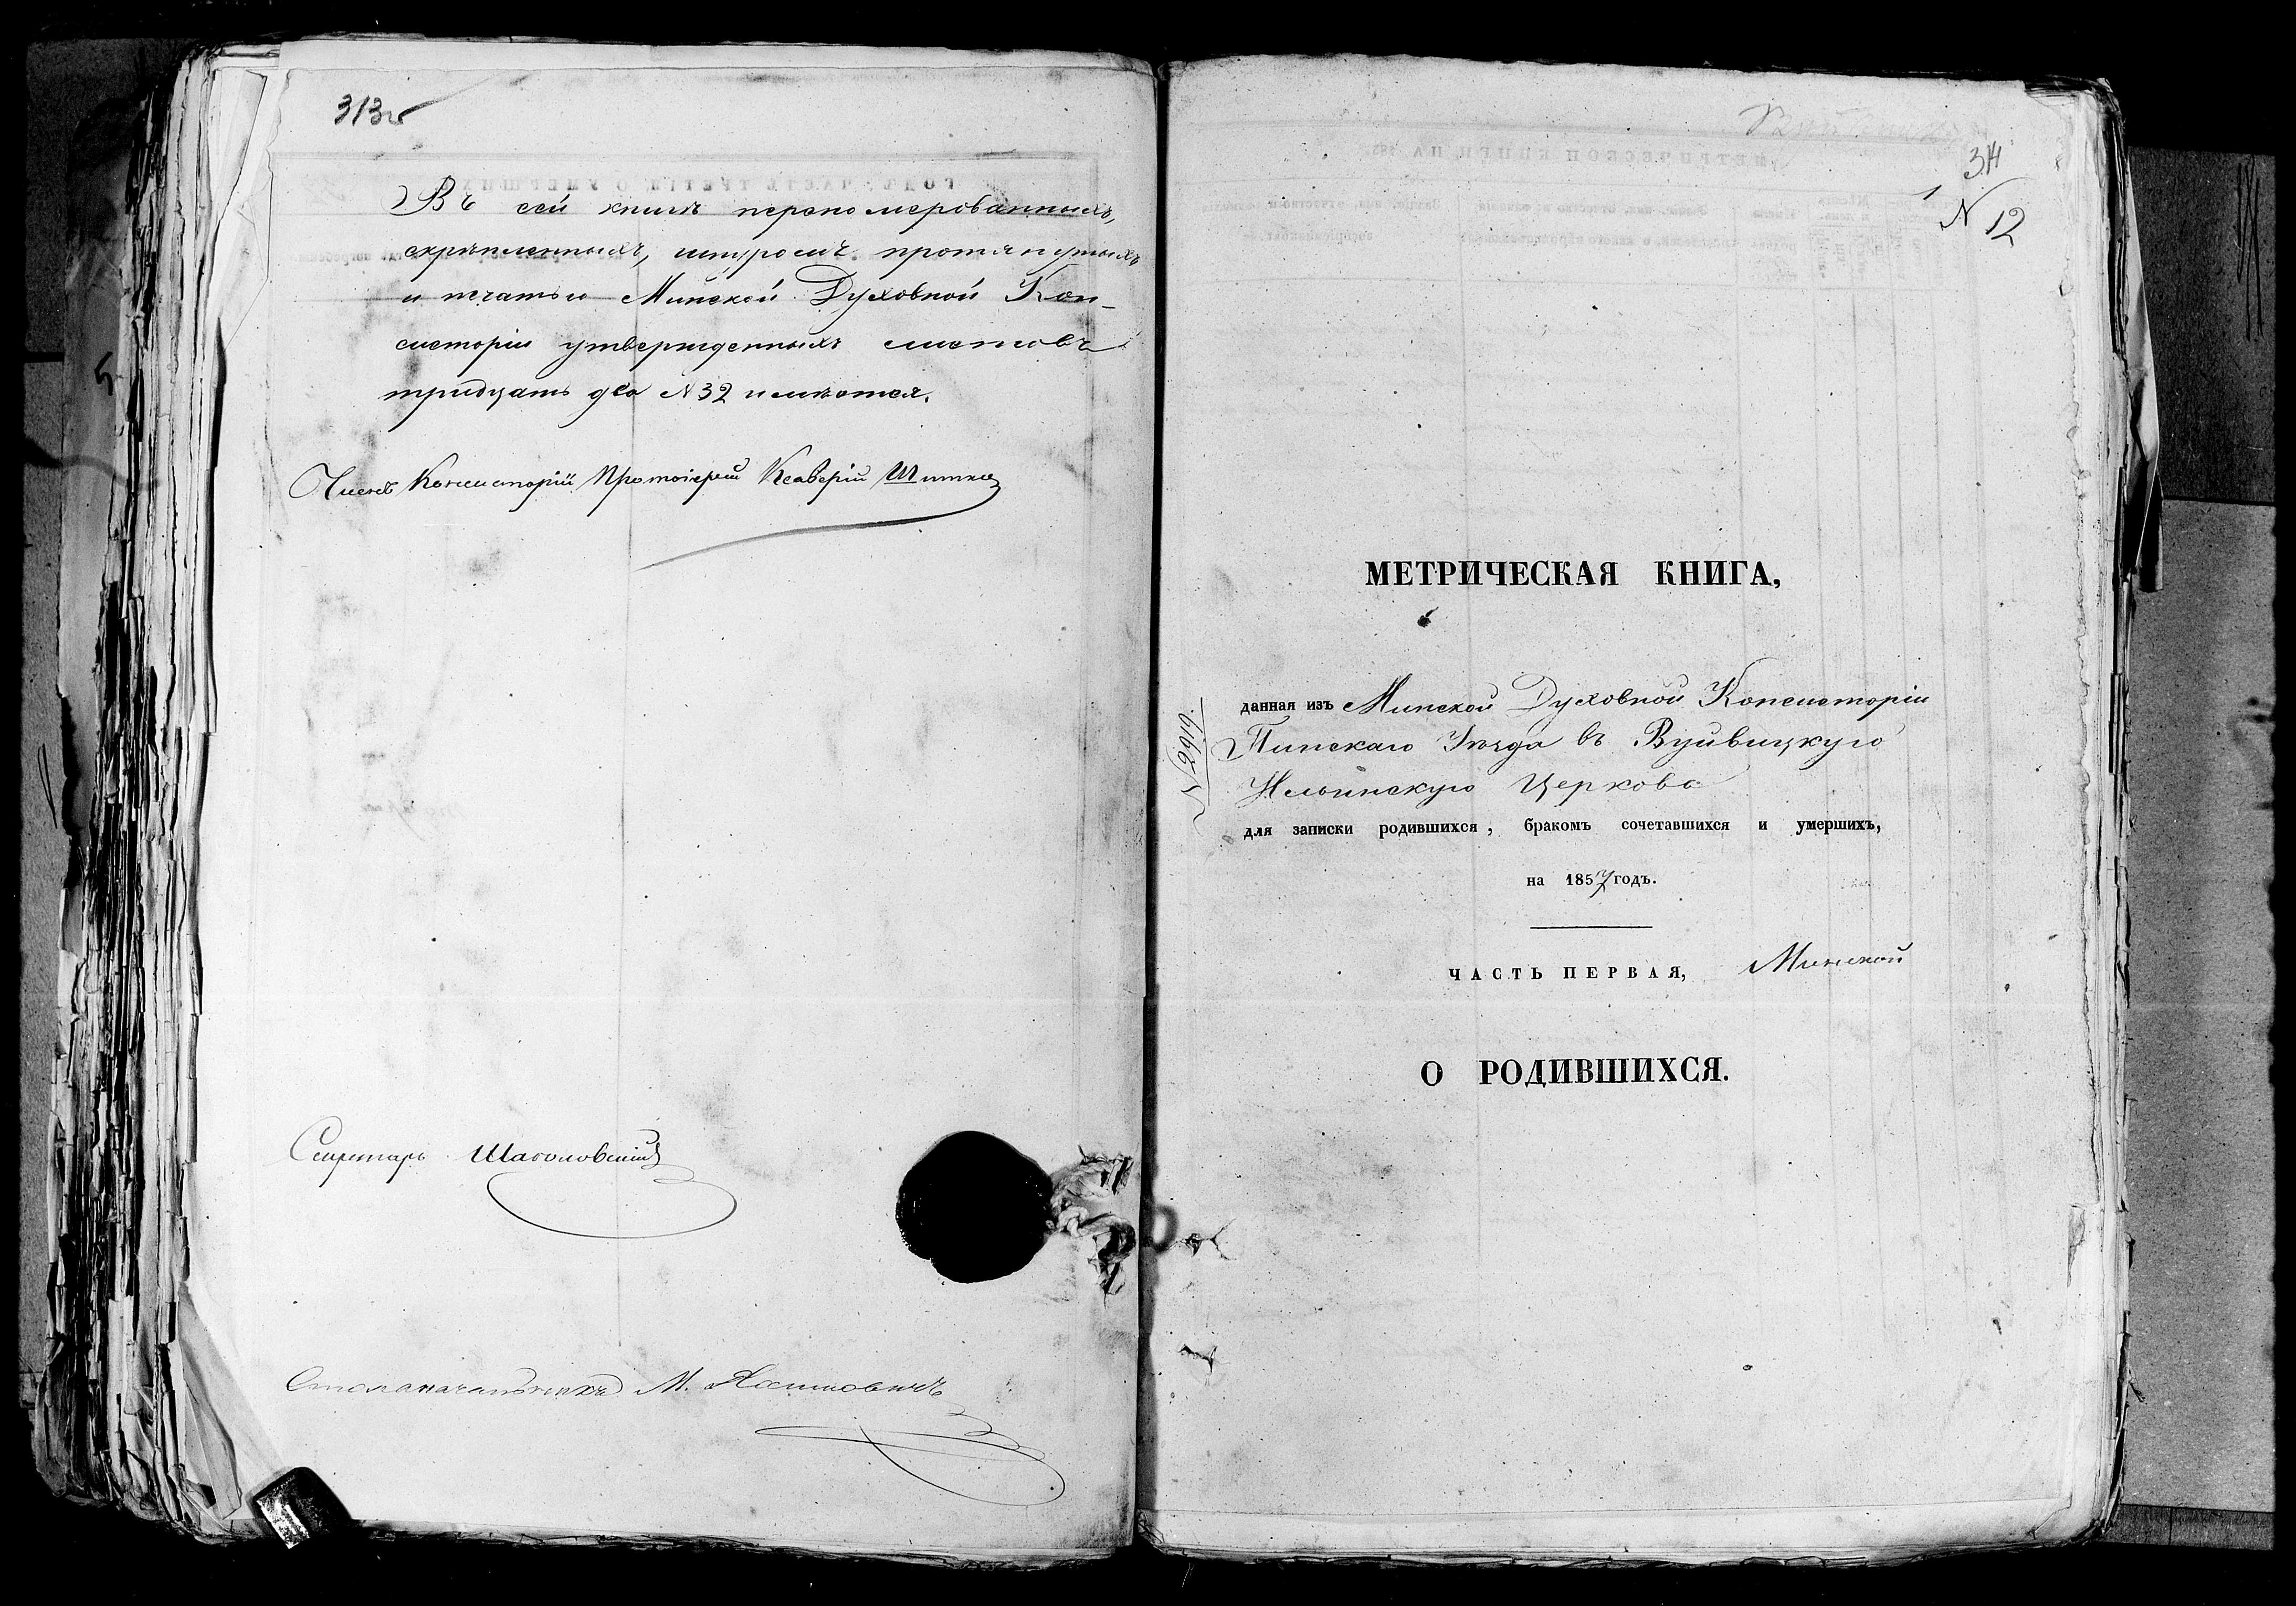 313об
Въ сей книгѣ перепомерованныхъ,
скрѣпленныхъ, шнуромъ протянутыхъ
и печатью Минской Духовной Кон-
систоріи утвержденныхъ листовъ
тридцать два № 32 имѣется.
Членъ Консисторіи Протоіерей Ксаверій
Секретарь
Столоначальникъ М.
314
1
N 12
МЕТРИЧЕСКАЯ КНИГА,
данная изъ Минской Духовной Консисторіи
Пинскаго Уѣзда въ Вуйвицкую
Ильинскую Церковь
N 2919.
для записки родившихся, бракомъ сочетавшихся и умершихъ,
на 1857 годъ.
ЧАСТЬ ПЕРВАЯ, Минской
О РОДИВШИХСЯ.